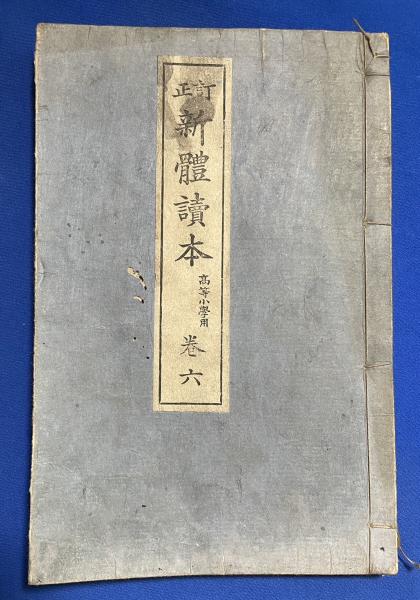 訂正
新體讀本
高等小學用
卷六